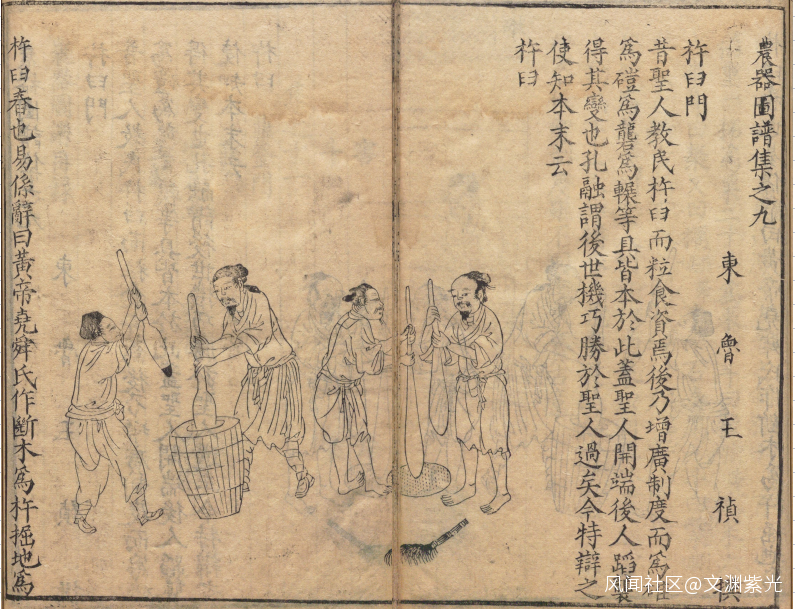 農器圖譜集之九
東魯王禎撰
杵臼門
昔聖人教民杵臼而粒食資焉後乃增廣制度而為碓
為磑為礱為輾等具皆本於此蓋聖人開端後人蹈襲
得其變也孔融謂後世機巧勝於聖人過矣今特辯之
使知本末云
杵臼
杵臼舂也易係辭曰黃帝堯舜氏作斷木為杵掘地為
风闻社区@文渊紫光